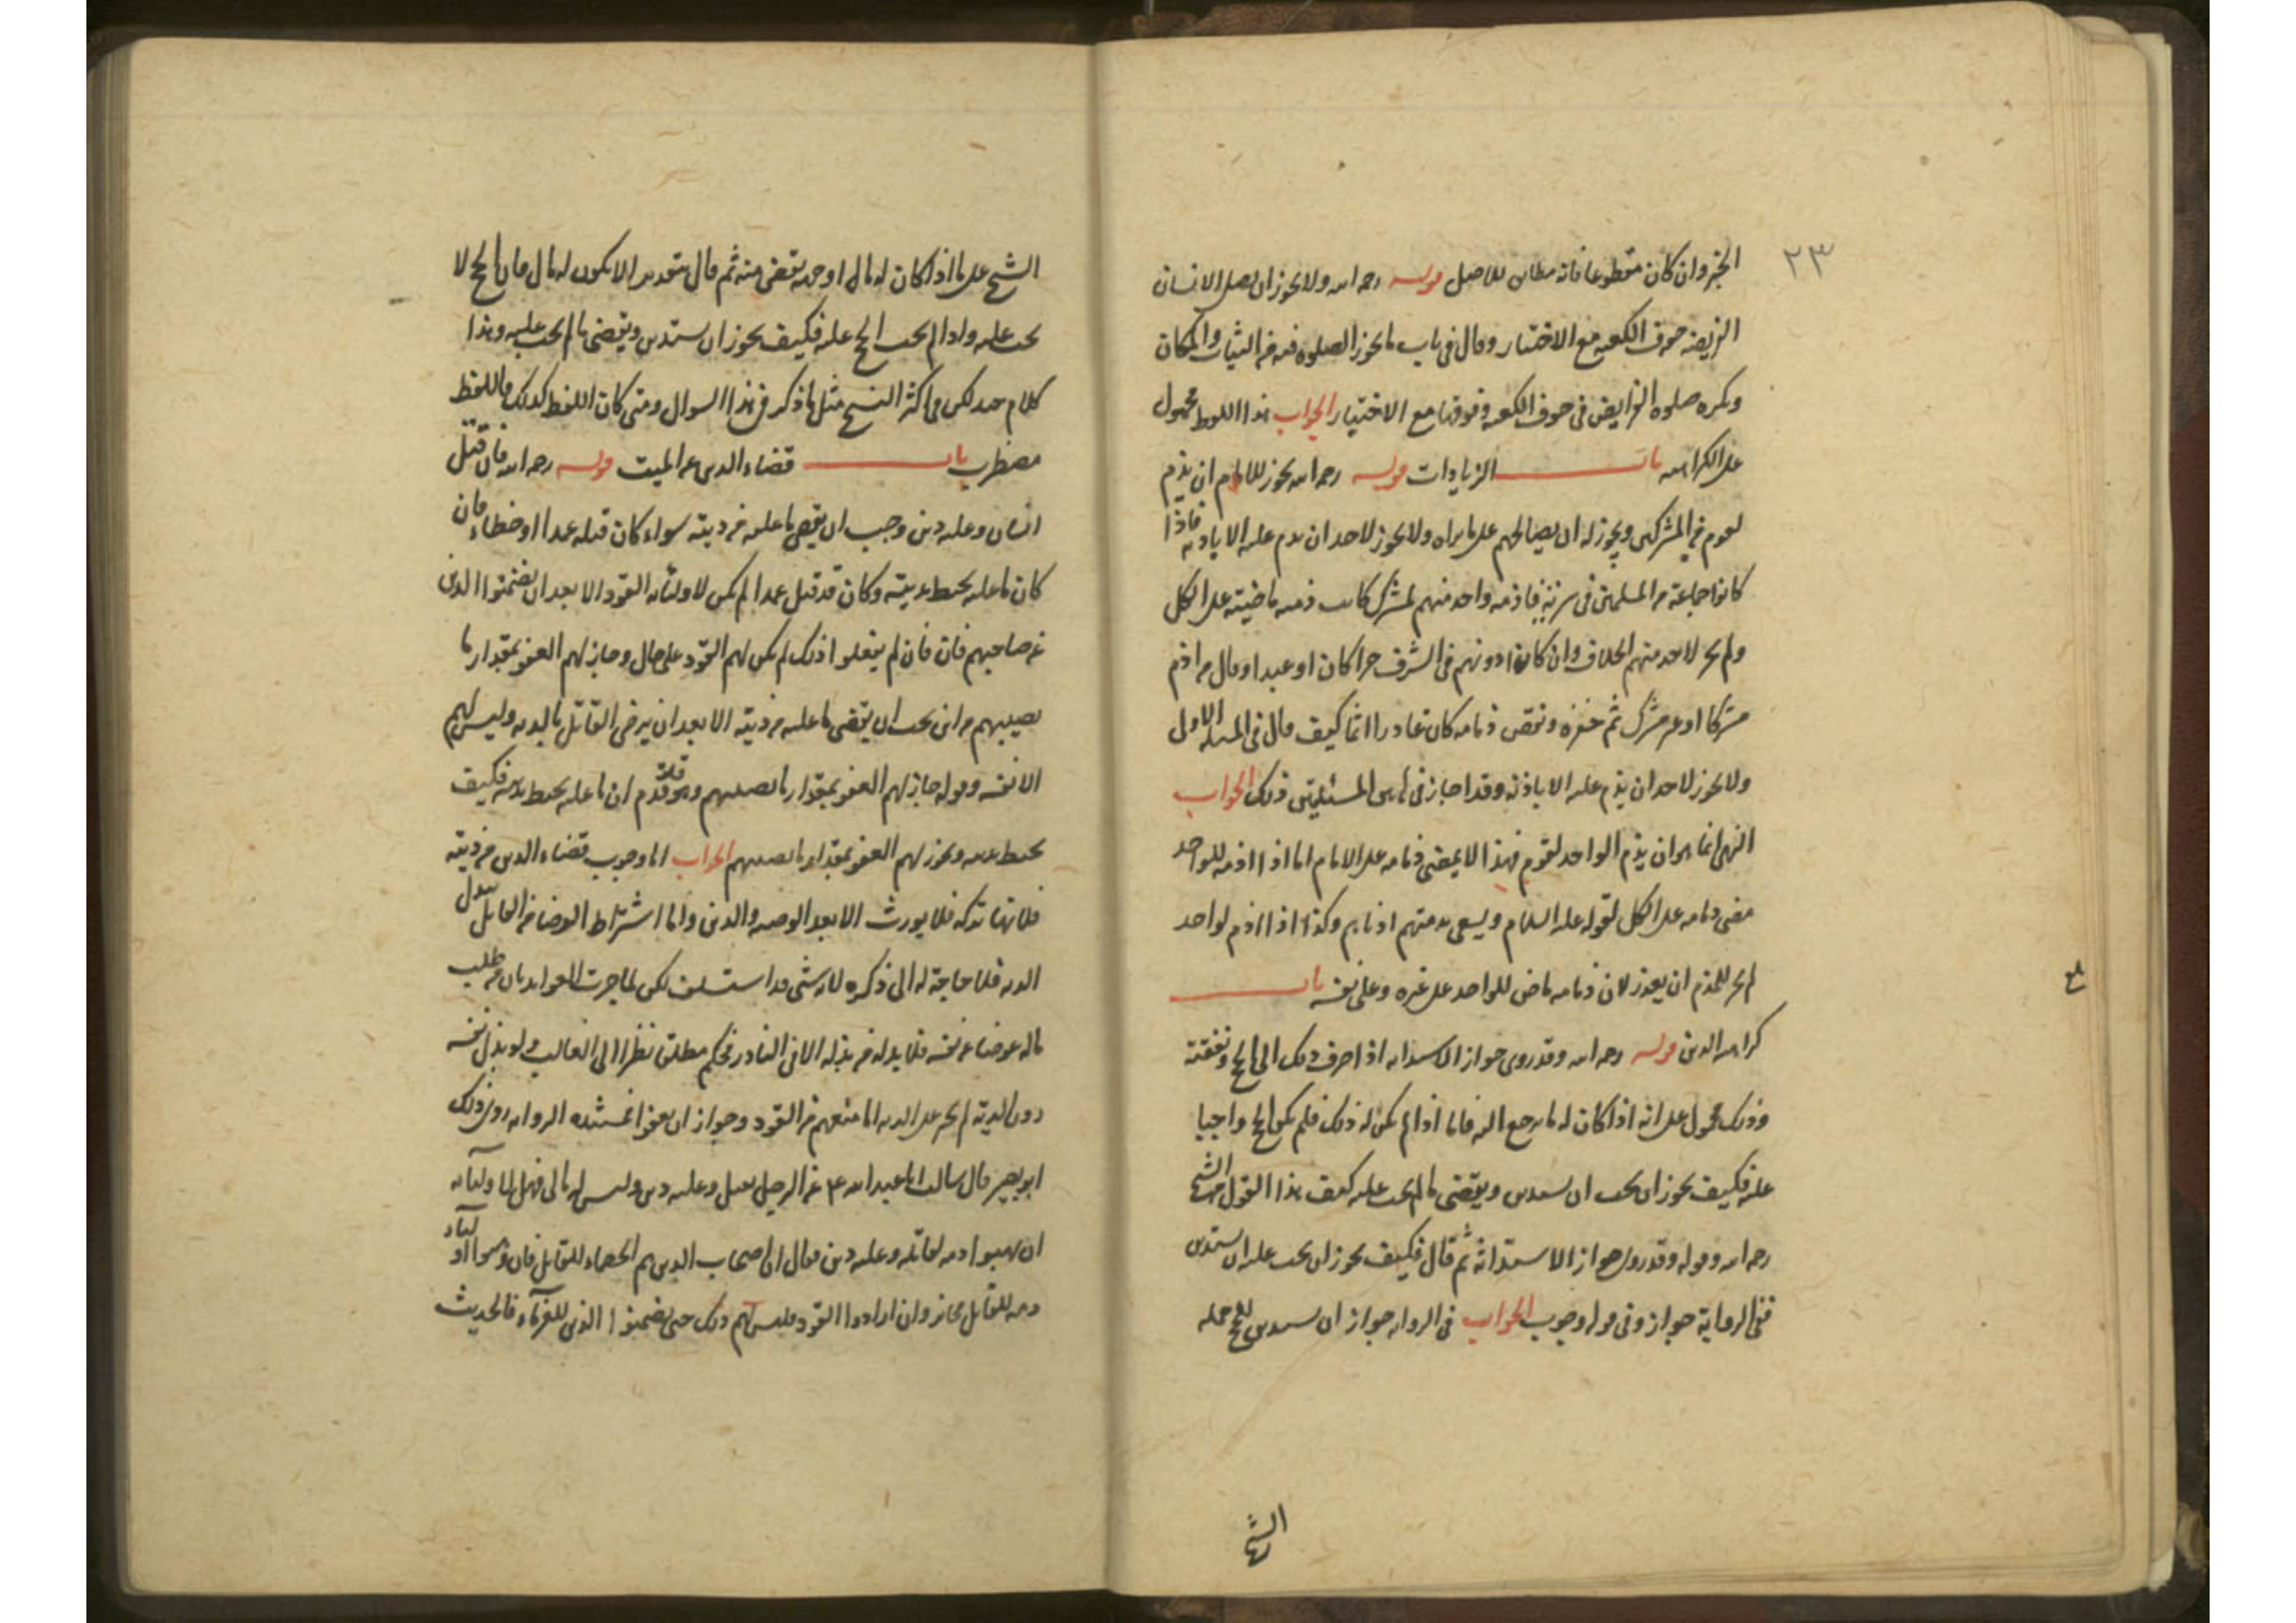 ٢٣
الخبر وان كان مقطوعا فانه مطابق للاصل قوله رحمه الله ولا يجوز ان يصلى الانسان
الفريضة جوف الكعبة مع الاختيار وقال فى باب ما يجوز الصلوة فيه من الثياب والمكان
ويكره صلوة الفرايض فى جوف الكعبه وفوقها مع الاختيار الجواب هذا اللفظ محمول
على الكراهيه باب الزيادات قوله رحمه الله يجوز للامام ان يذم
لقوم من المشركين ويجوز له ان يصالحهم على ما يراه ولا يجوز لاحد ان يذم عليه الا باذنه فاذا
كانوا جماعة من المسلمين فى سرية فاذم واحد منهم لمشرك كانت ذمته ماضية على الكل
ولم يجز لاحد منهم الخلاف وان كان ادونهم فى الشرف حرا كان او عبدا وقال من اذم
مشركا او غير مشرك ثم خفره ونقض ذمامه كان غادرا اثما كيف قال فى المسئلة الاولى
ولا يجوز لاحد ان يذم عليه الا باذنه وقد اجاز فى هاتين المسئلتين ذلك الجواب
النهى انما هو ان يذم الواحد لقوم فهذا لا يمضى ذمامه على الامام اما اذا اذم للواحد
مضى ذمامه على الكل لقوله عليه السلام ويسعى بذمتهم ادناهم وكذا اذا اذم لواحد
لم يجز للمذم ان يغدر لان ذمامه ماض للواحد على غيره وعلى نفسه باب
كراهيه الدين قوله رحمه الله وقد روى جواز الاستدانه اذا صرف ذلك الى الحج ونفقته
وذلك محمول على انه اذا كان له ما يرجع اليه فاما اذا لم يكن له ذلك فلم يكن الحج واجبا
عليه فكيف يجوز ان يجب ان يستدين ويقضى ما لم يجب عليه كيف هذا القول من الشيخ
رحمه الله وقوله وقد روى جواز الاستدانة ثم قال فكيف يجوز ان يجب عليه ان يستدين
ففى الرواية جواز وفى قوله وجوب الجواب فى الروايه جواز ان يستدين للحج حمله
الشيخ
الشيخ على ما اذا كان له مال او جهه يقضى منه ثم قال بتقدير الا يكون له مال فان الحج لا
يجب عليه واذا لم يجب الحج عليه فكيف يجوز ان يستدين ويقضى ما لم يجب عليه وهذا
كلام جيد لكن فى اكثر النسخ مثل ما ذكر فى هذا السوال ومتى كان اللفظ كذلك فاللفظ
مضطرب باب قضاء الدين عن الميت قوله رحمه الله فان قتل
انسان وعليه دين وجب ان يقضى ما عليه من ديته سواء كان قتله عمدا او خطاء فان
كان ما عليه يحيط بديته وكان قد قتل عمدا لم يكن لاوليائه القود الا بعد ان يضمنوا الدين
عن صاحبهم فان فان لم يفعلوا ذلك لم يكن لهم القود على حال وجاز لهم العفو بمقدار ما
يصيبهم من اين يجب ان يقضى ما عليه من ديته الا بعد ان يرضى القاتل بالديه وليس لهم
الا نفسه وقوله جاز لهم العفو بمقدار ما يصيبهم وقد قدم ان ما عليه يحيط بديته فكيف
يحيط بديته ويجوز لهم العفو بمقدار ما يصيبهم الجواب اما وجوب قضاء الدين من ديته
فلانها تركه فلا يورث الا بعد الوصيه والدين واما اشتراط الرضا من القاتل ببذل
الديه فلا حاجة له الى ذكره لانه شى قد استسلف لكن لما جرت العوايد بان من طلب
ماله عوضا عن نفسه فلا بد له من بذله الا فى النادر فحكم مطلقا نظرا الى الغالب ولو بذل نفسه
دون الدية لم يجبر على الديه اما منعهم من القود وجواز ان يعفوا فمستنده الروايه روى ذلك
ابو بصير قال سالت ابا عبد الله ع عن الرجل يقتل وعليه دين وليس له مال فهل لاوليائه
ان يهبوا دمه لقاتله وعليه دين فقال ان اصحاب الدين هم الخصماء للقاتل فان وهبوا اولياؤه
دمه للقاتل فجائز وان ارادوا القود فليس لهم ذلك حتى يضمنوا الدين للغرماء فالحديث